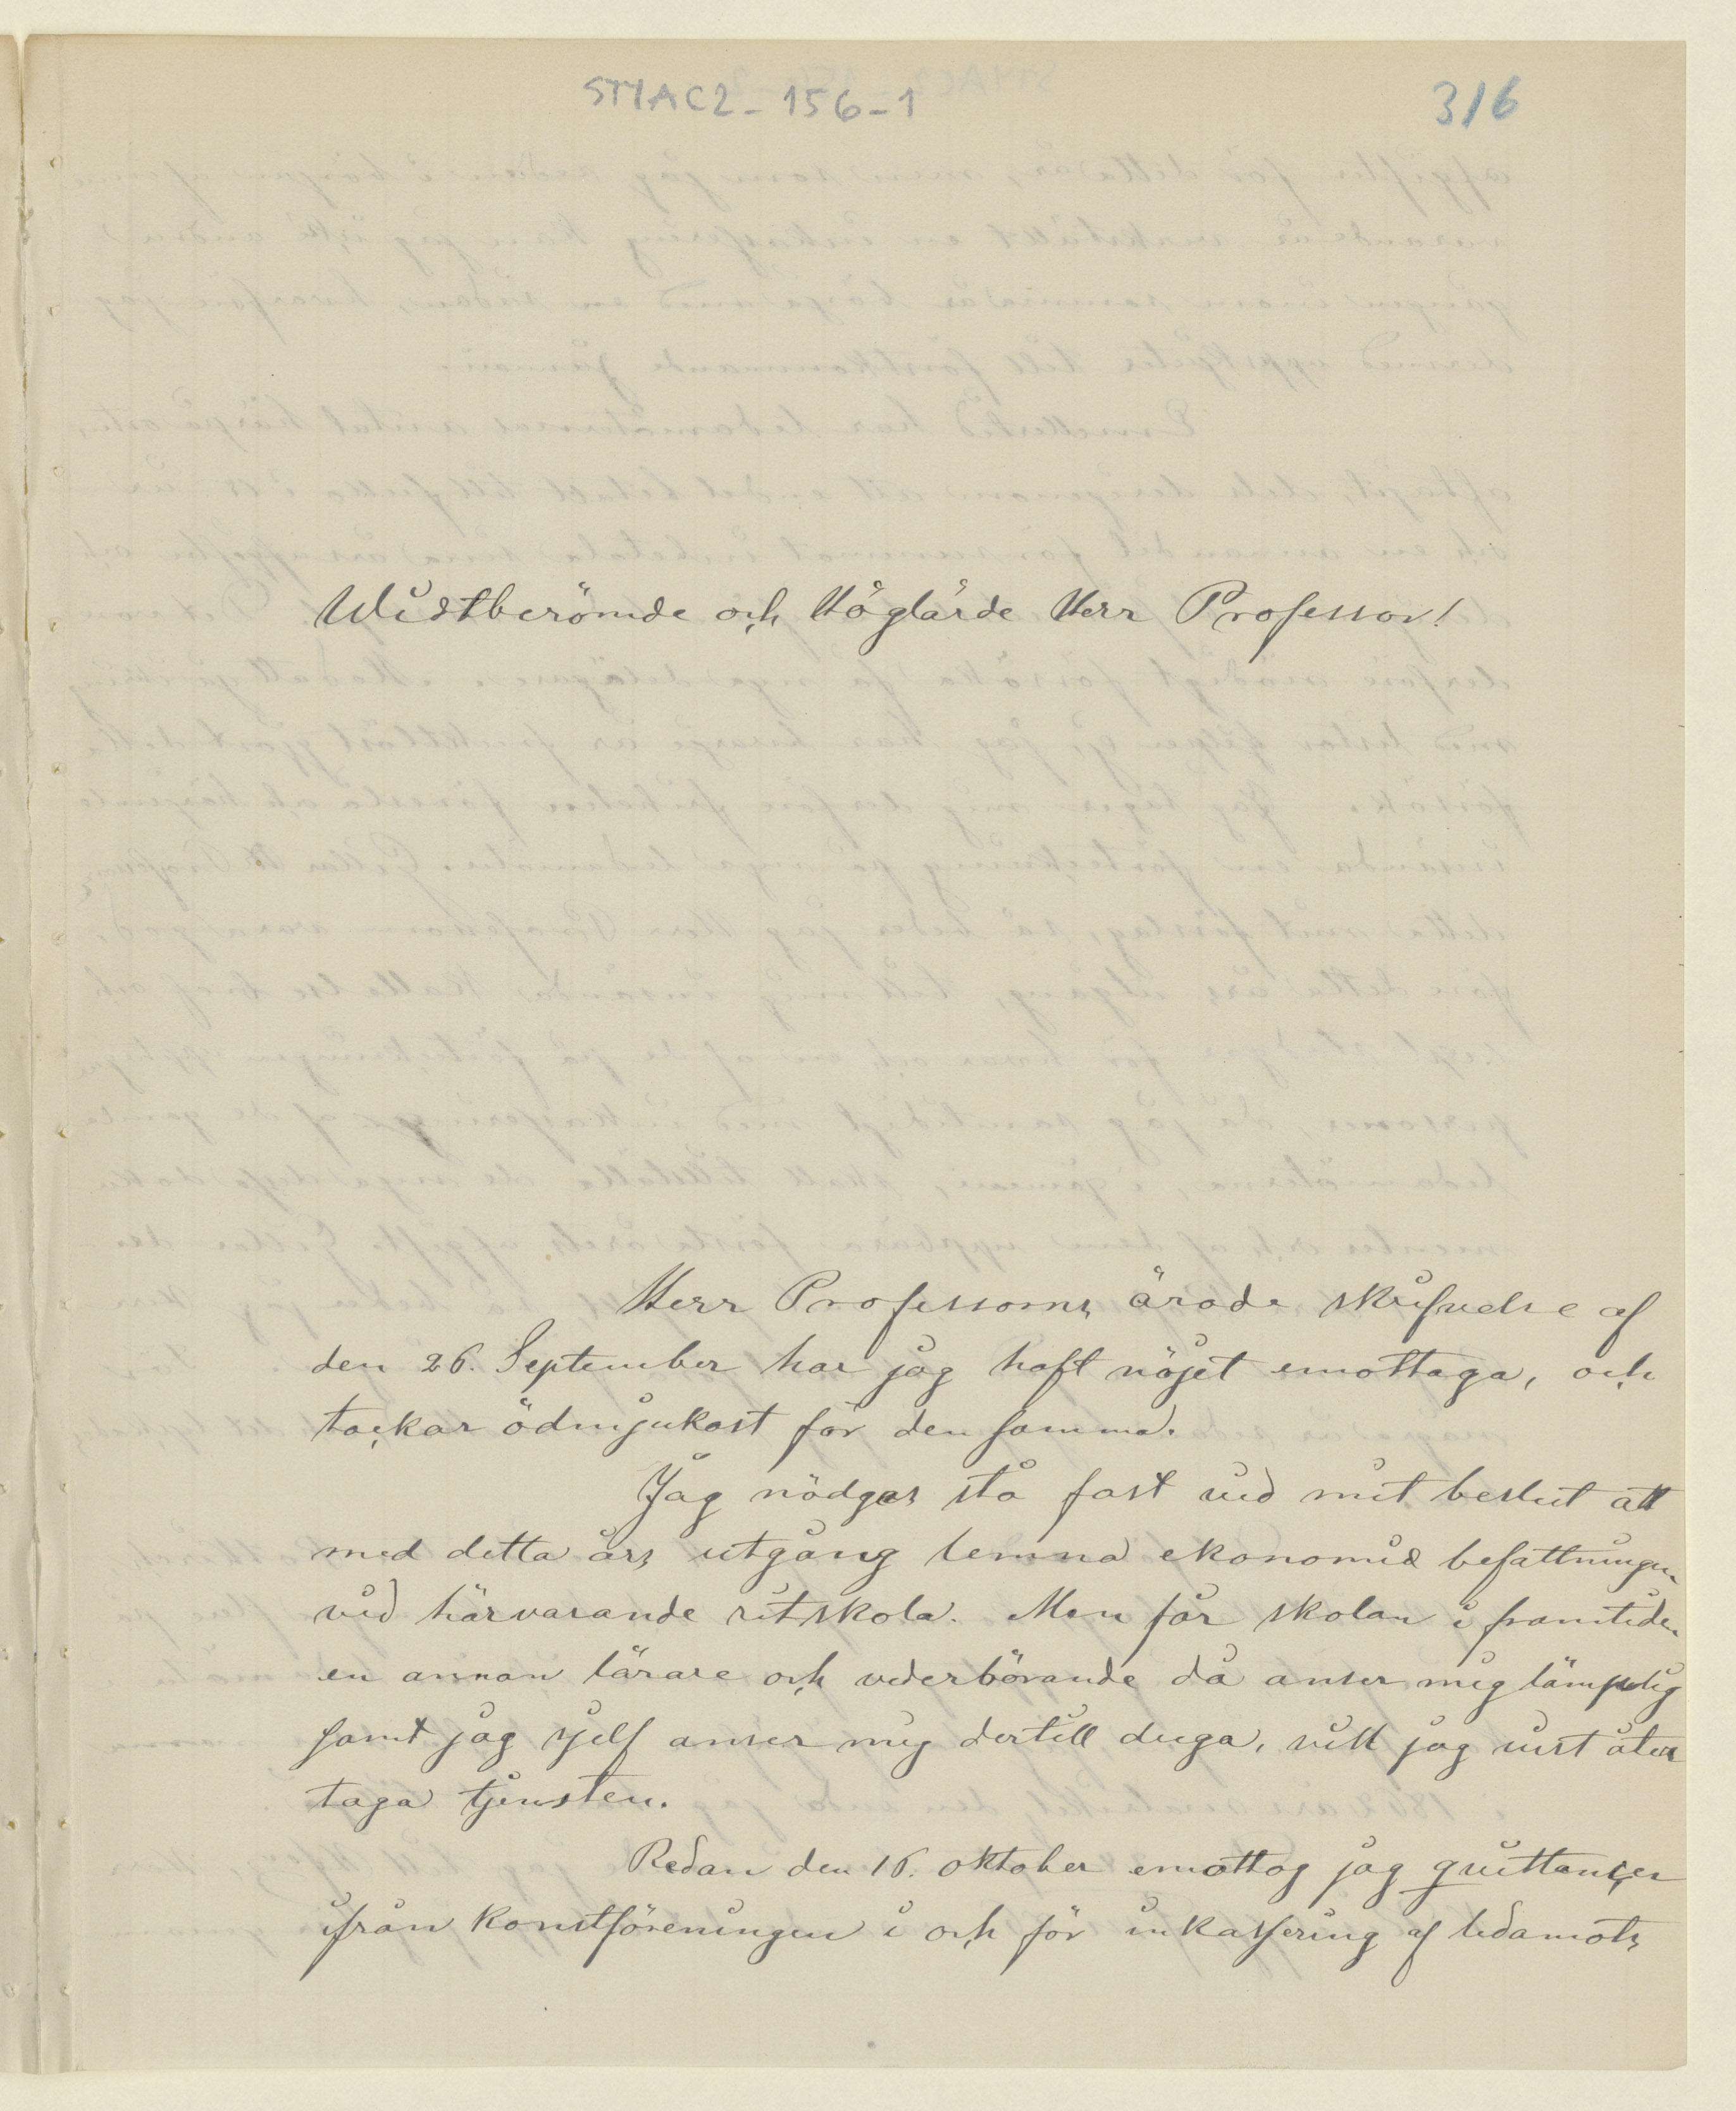 STYAC2-156-1
316
Widtberömde och Höglärde Herr Professor!
Herr Professorns ärade skrifvelse af
den 26. September har jag haft nöjet emottaga, och
tackar ödmjukast för densamma.
Jag nödgas stå fast vid mit beslut att
med detta års utgång lemna ekonomie befattningen
vid härvarande ritskola. Men får skolan i framtiden
en annan lärare och vederbörande då anser mig lämplig
samt jag sjelf anser mig dertill duga, vill jag visst åter
taga tjensten.
Redan den 16. oktober emottog jag quittancer
ifrån konstföreningen i och för inkassering af ledamots